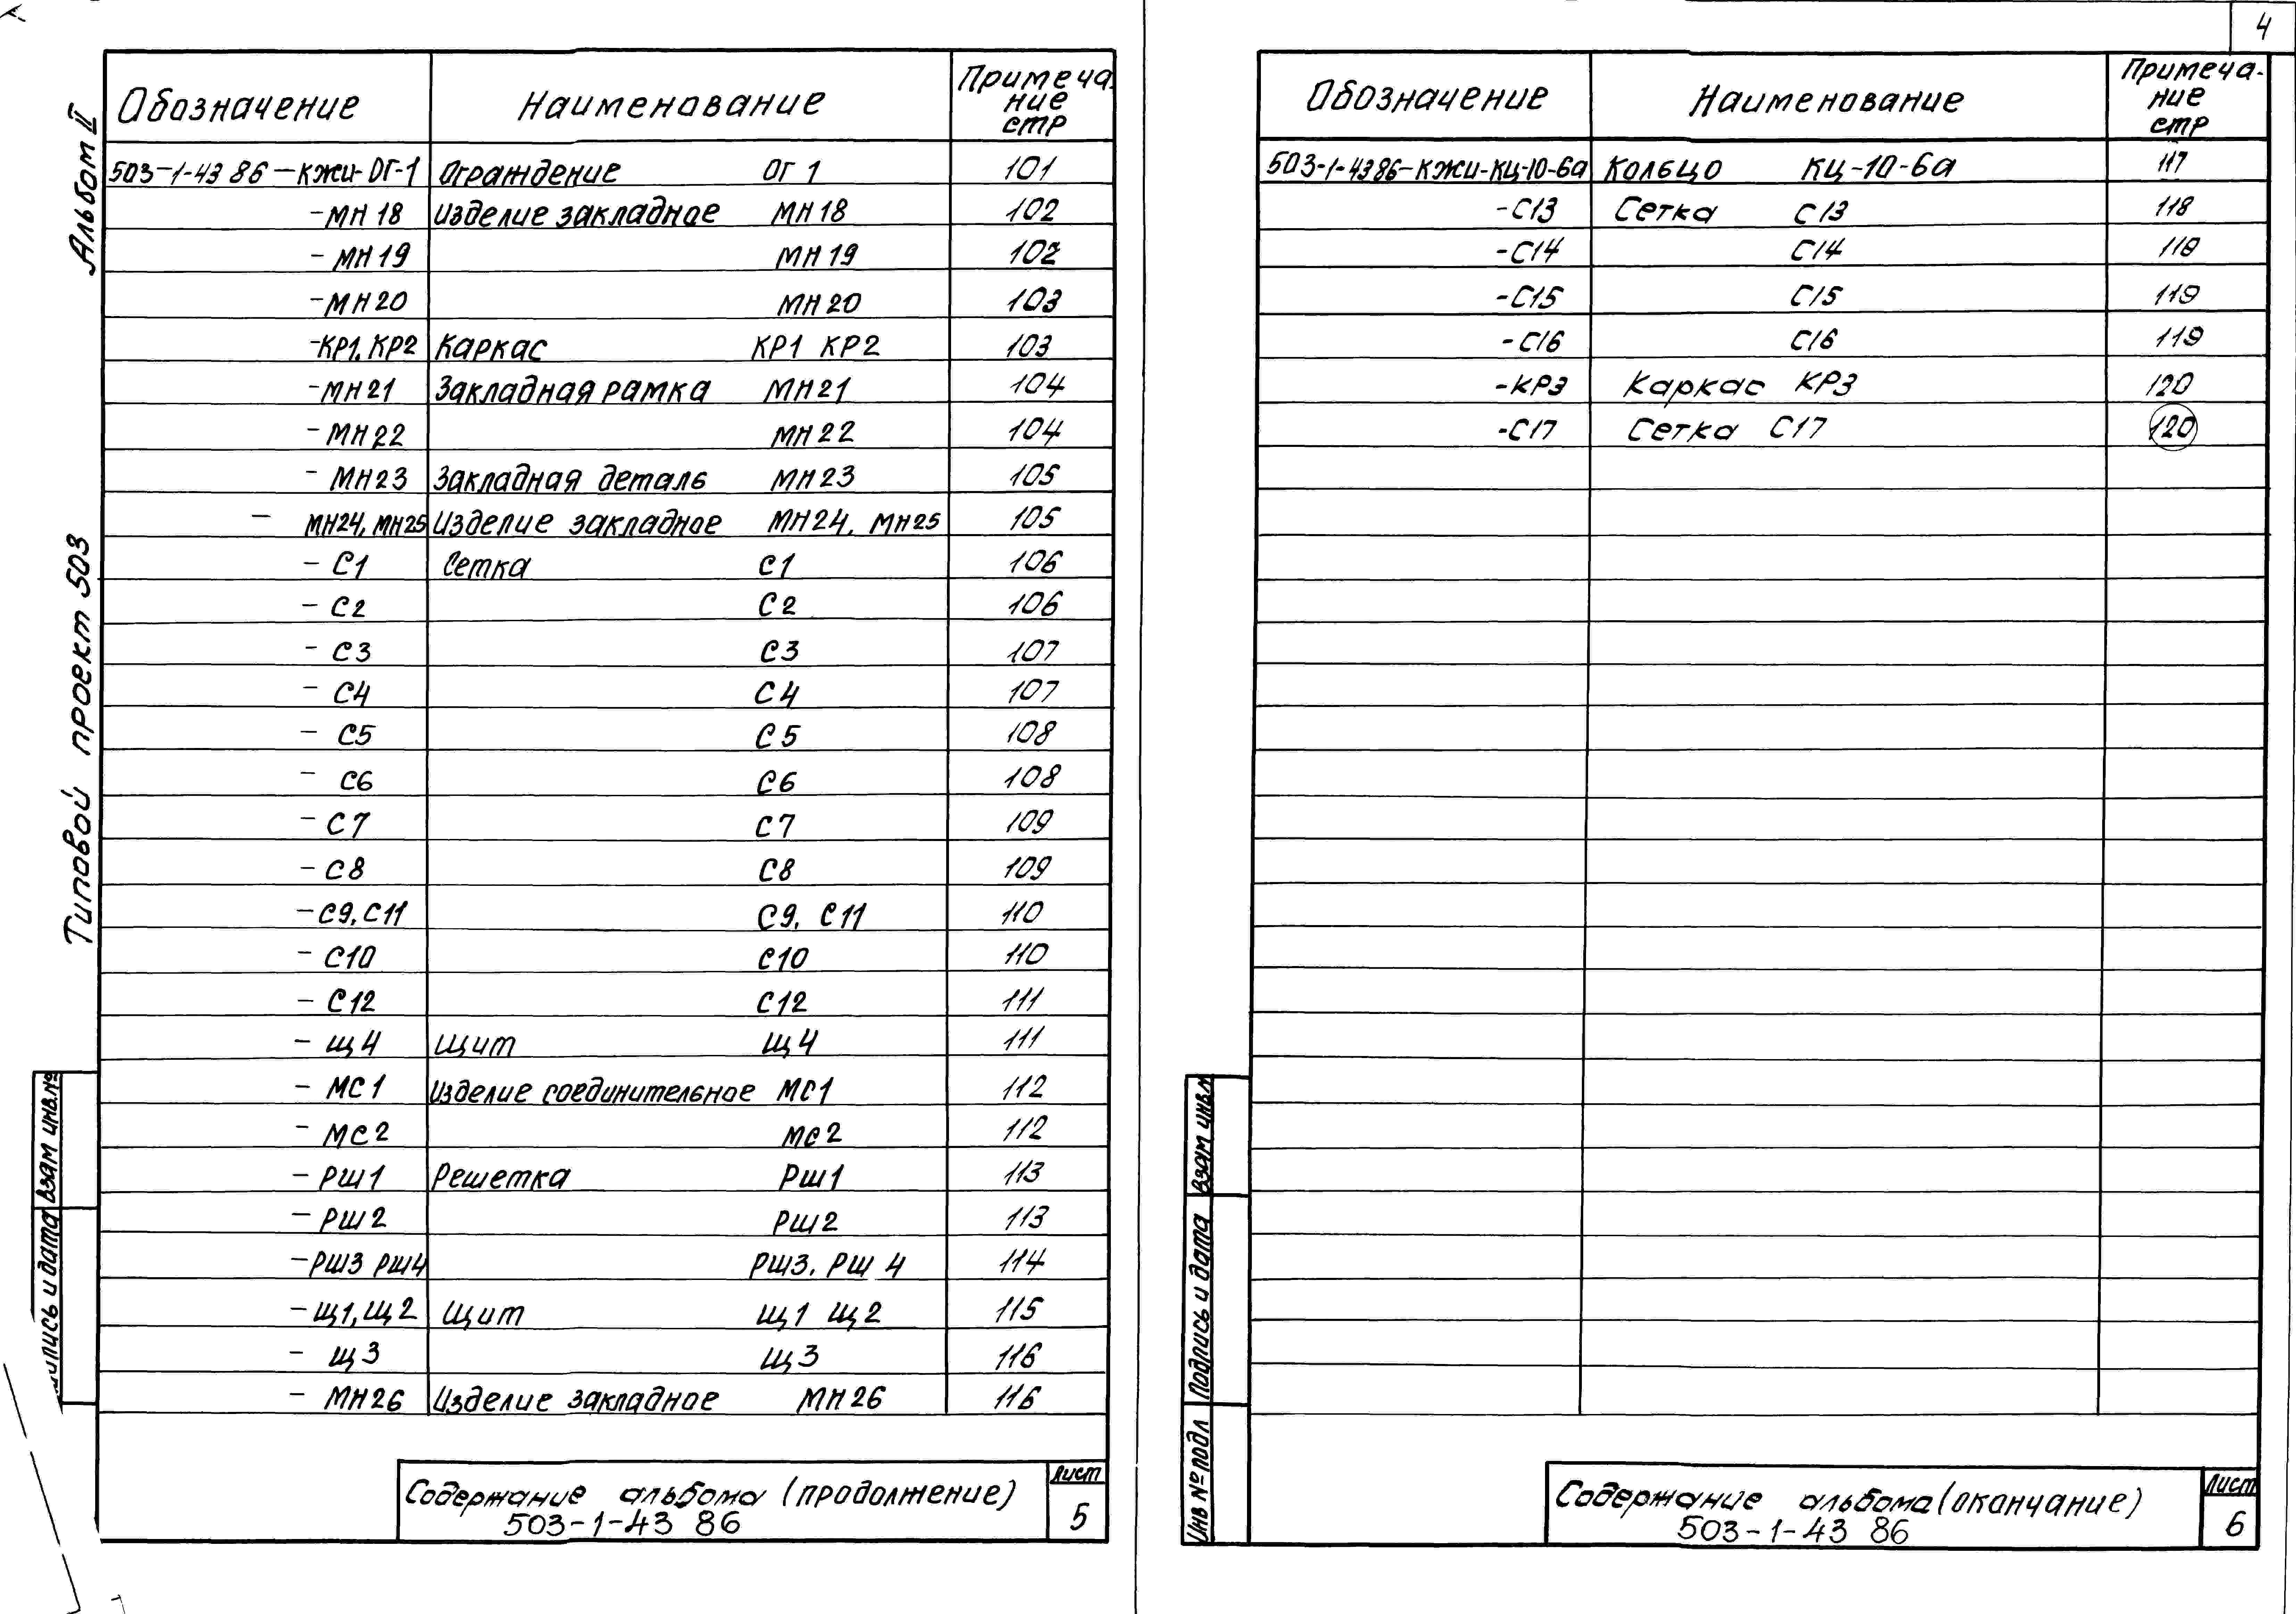 4
Альбом II
Типовой проект 503
Обозначение Наименование Примеча-
ние
стр
503-1-43 86-КЖИ-ОГ-1 Ограждение ОГ 1 101
- МН 18 Изделие закладное МН 18 102
- МН 19 МН 19 102
- МН 20 МН 20 103
- КР1, КР2 Каркас КР1 КР2 103
- МН 21 Закладная рамка МН 21 104
- МН 22 МН 22 104
- МН 23 Закладная деталь МН 23 105
- МН24, МН25 Изделие закладное МН24, МН25 105
- С1 Сетка С1 106
- С2 С2 106
- С3 С3 107
- С4 С4 107
- С5 С5 108
- С6 С6 108
- С7 С7 109
- С8 С8 109
- С9, С11 С9, С11 110
- С10 С10 110
- С12 С12 111
- Щ4 Щит Щ4 111
- МС1 Изделие соединительное МС1 112
- МС2 МС2 112
- РШ1 Решетка РШ1 113
- РШ2 РШ2 113
- РШ3 РШ4 РШ3, РШ 4 114
- Щ1, Щ2 Щит Щ1 Щ2 115
- Щ3 Щ3 116
- МН26 Изделие закладное МН 26 116
Взам инв.№
дпись и дата
Содержание альбома (продолжение)
503-1-43 86
Лист
5
Обозначение Наименование Примеча-
ние
стр
503-1-43 86-КЖИ-КЦ-10-6а Кольцо КЦ-10-6а 117
-С13 Сетка С13 118
-С14 С14 118
-С15 С15 119
-С16 С16 119
-КР3 Каркас КР3 120
-С17 Сетка С17 120
Взам инв.№
Подпись и дата
Инв № подл
Содержание альбома (окончание)
503-1-43 86
Лист
6